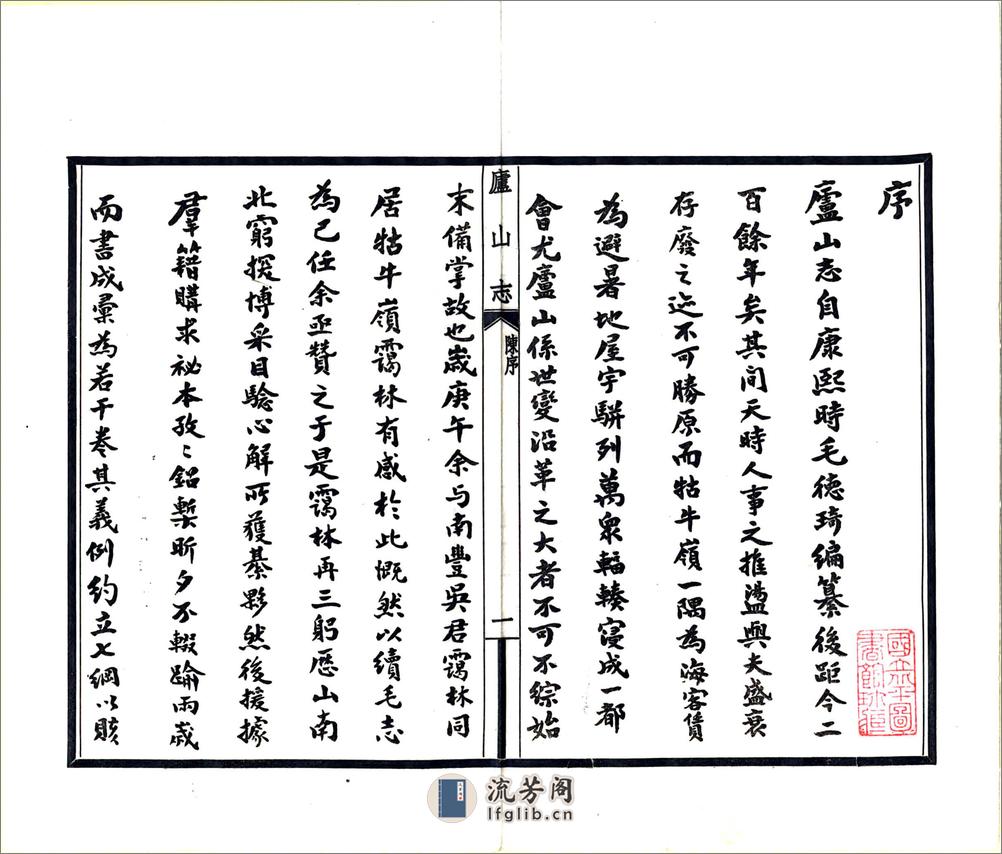 序
廬山志自康熙時毛德琦編纂後距今二
百餘年矣其間天時人事之推盪與夫盛衰
存廢之迹不可勝原而牯牛嶺一隅為海客賃
為避暑地屋宇駢列萬眾輻輳寖成一都
會尤廬山係世變沿革之大者不可不綜始
廬山志
陳序
一
末備掌故也歲庚午余与南豐吳君靄林同
居牯牛嶺靄林有感於此慨然以續毛志
為己任余亟贊之于是靄林再三躬歷山南
北窮探博采目驗心解所獲綦夥然後援據
羣籍購求祕本孜〻鉛槧昕夕不輟踰兩歲
而書成彙為若干卷其義例約立七綱以賅
國立北平圖
書館珍藏
流芳阁
lfglib.cn